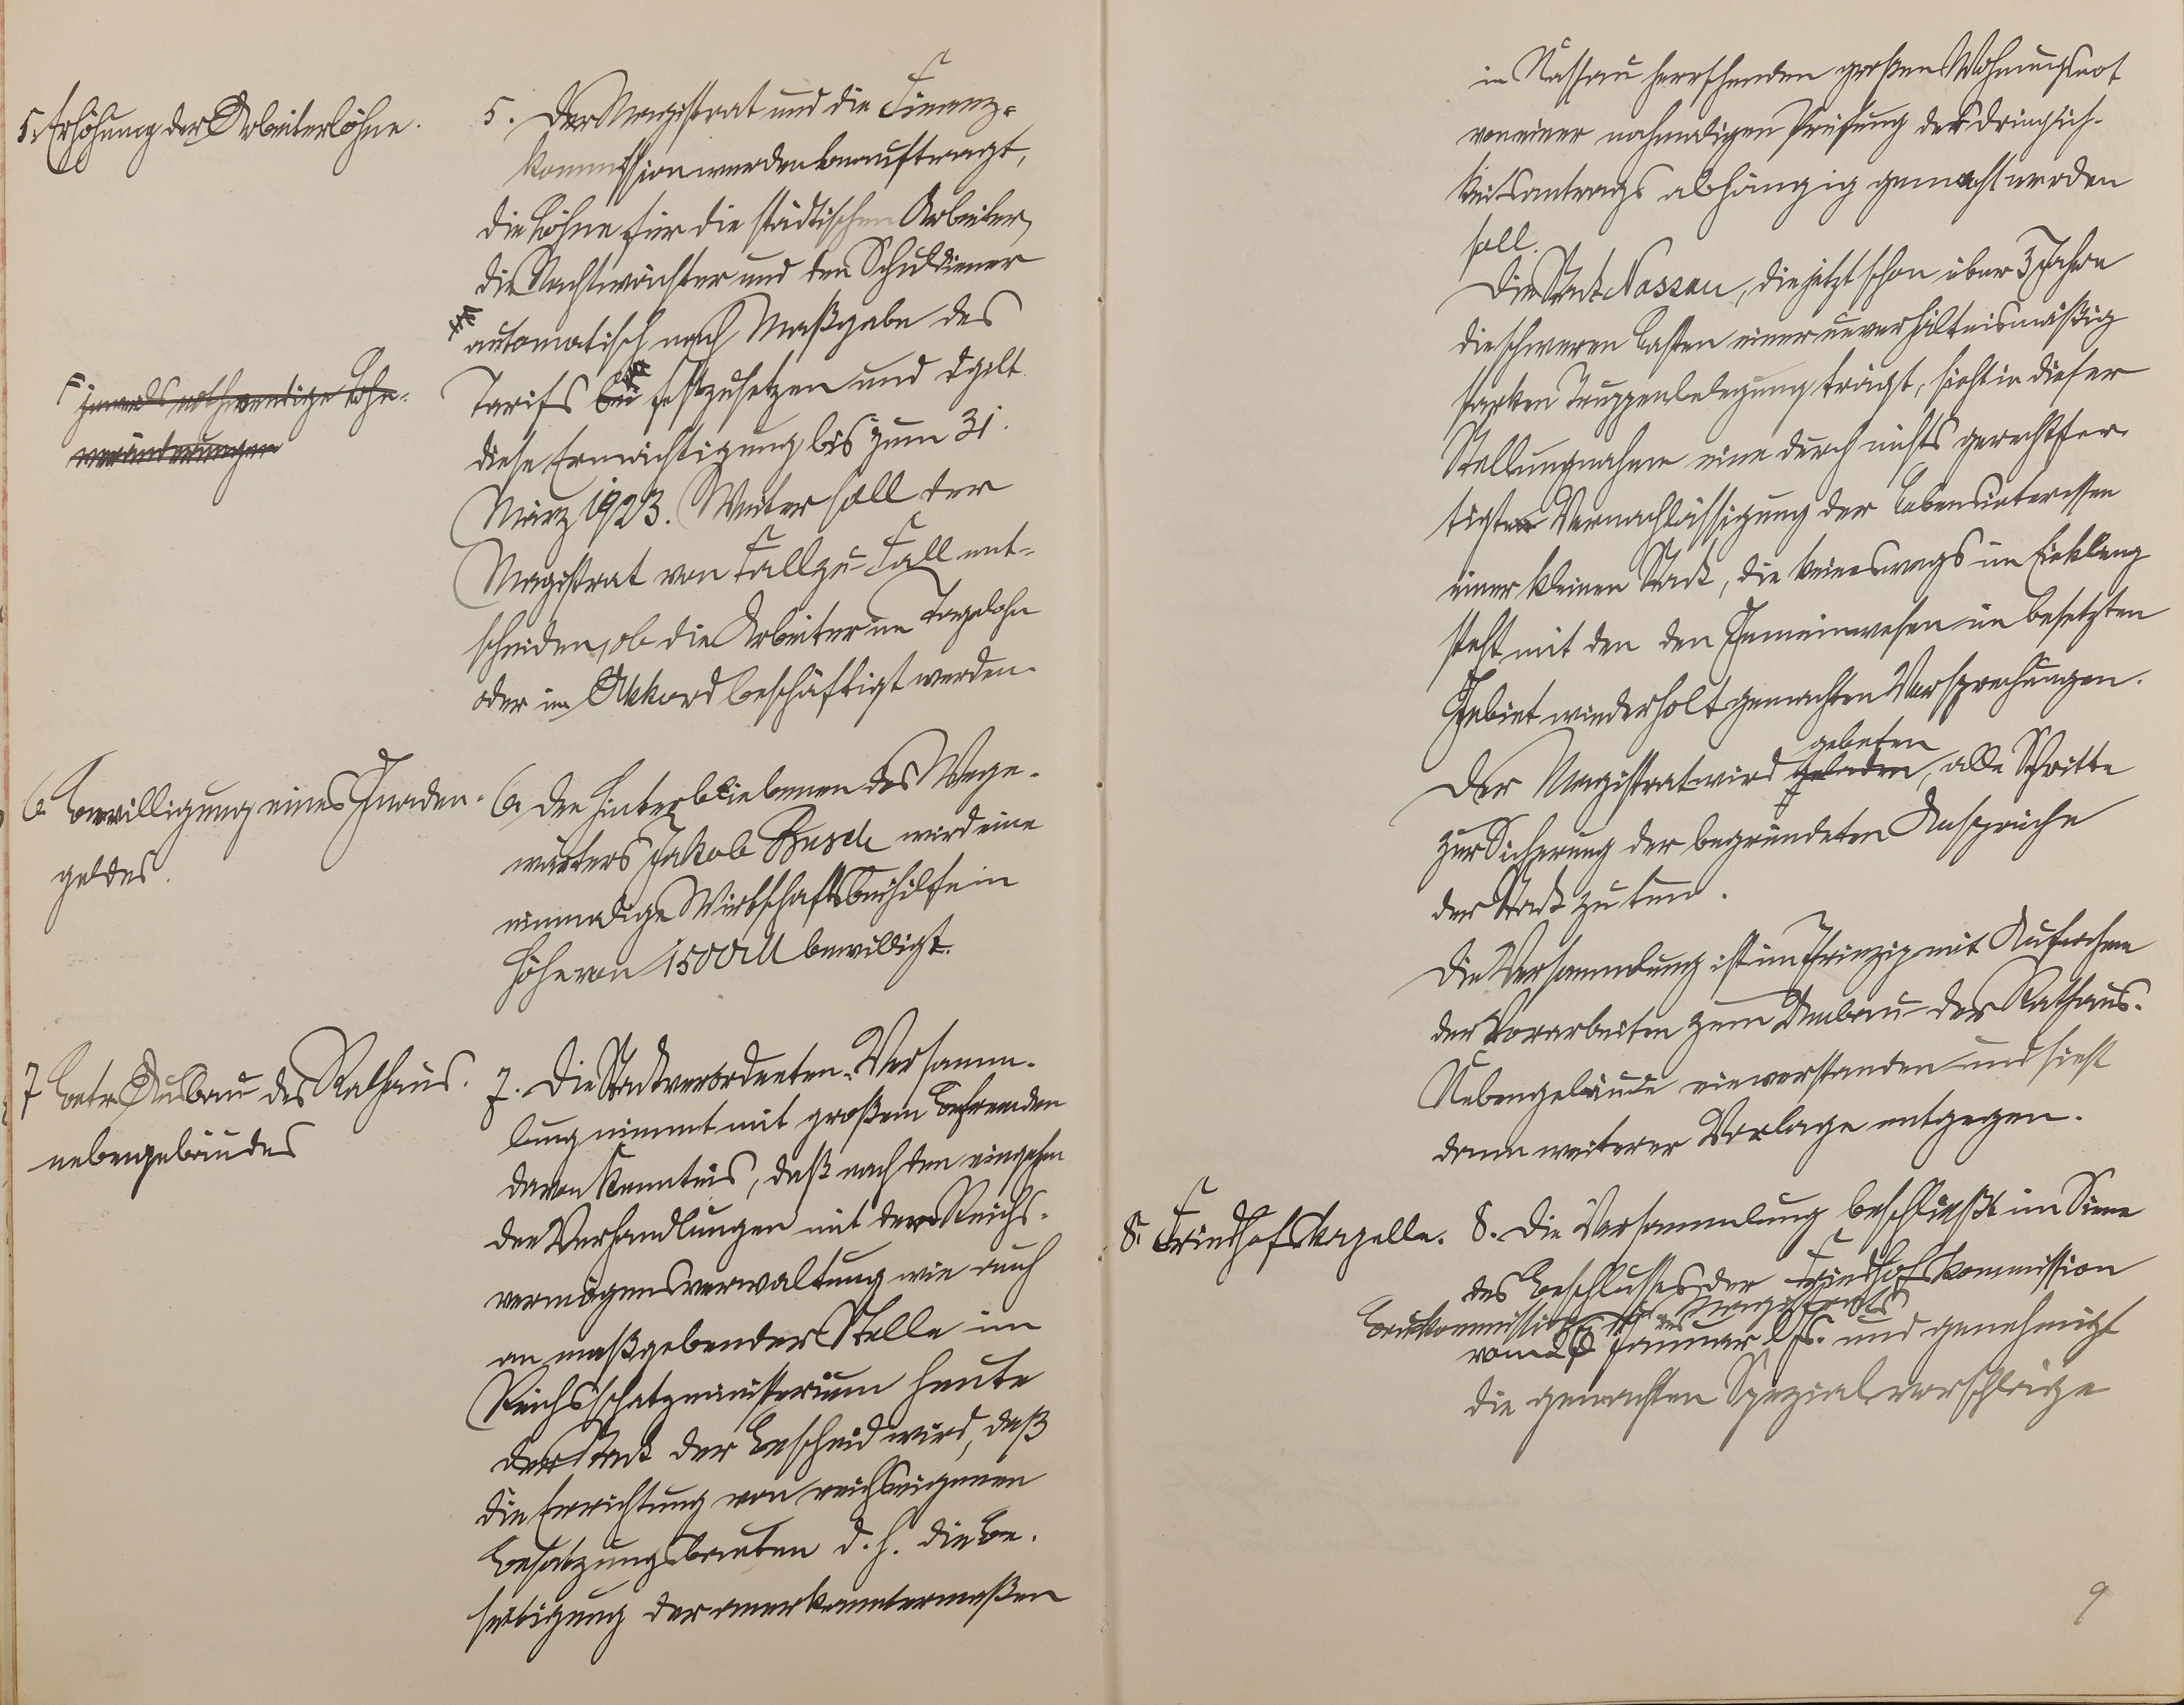 5. Erhöhung der Arbeiterlöhne.
5. Der Magistrat und die Finanz-
kommission werden beauftragt,
die Löhne für die städtischen Arbeiter,
die Nachtwächter und den Schuldiener
automatisch nach Maßgabe des
Tarifs bei festzusetzen und gilt
diese Ermächtigung bis zum 31.
März 1923. Weiter soll der
Magistrat von Fall zu Fall ent-
scheiden, ob die Arbeiter im Tagelohn
oder im Akkord beschäftigt werden.
jeweils nothwendige Lohn-
veränderungen
6. Bewilligung eines Gnaden-
geldes.
6. Den Hinterbliebenen des Wege-
wärters Jakob Busch wird eine
einmalige Wirtschaftsbeihilfe in
Höhe von 1500 M bewilligt.
7 Betr. Ausbau des Rathaus-
nebengebäudes
7. Die Stadtverordneten-Versamm-
lung nimmt mit großem Befremden
davon Kenntnis, daß nach den eingehen
den Verhandlungen mit der Reichs-
vermögensverwaltung wie auch
an maßgebender Stelle im
Reichsschatzministerium heute
der Stadt der Bescheid wird, daß
die Errichtung von reichseigenen
Besatzungsbauten d. h. die Be-
seitigung der anerkanntermaßen
in Nassau herrschenden großen Wohnungsnot
von einer nochmaligen Prüfung des Dringlich-
keitsantrags abhängig gemacht werden
soll.
Die Stadt Nassau, die jetzt schon über 3 Jahre
die schweren Lasten einer unverhältnismäßig
starken Truppenbelegung trägt, sieht in dieser
Stellungnahme eine durch nichts gerechtfer-
tigte Vernachlässigung der Lebensinteressen
einer kleinen Stadt, die keineswegs im Einklang
steht mit den den Gemeinwesen im besetzten
Gebiet wiederholt gemachten Versprechungen.
gebeten
Der Magistrat wird geladen, alle Schritte
zur Sicherung der begründeten Ansprüche
der Stadt zu tun.
Die Versammlung ist im Prinzip mit Aufnahme
der Vorarbeiten zum Umbau des Rathaus-
Nebengebäude einverstanden und sieht
dann weiterer Vorlage entgegen.
8. Friedhofskapelle.
8. Die Versammlung beschließt im Sinne
des Beschlusses der Friedhofskommission
Baukommission des Magistrats
vom 26 Januar ds. Js. und genehmigt
die gemachten Spezialvorschläge
9